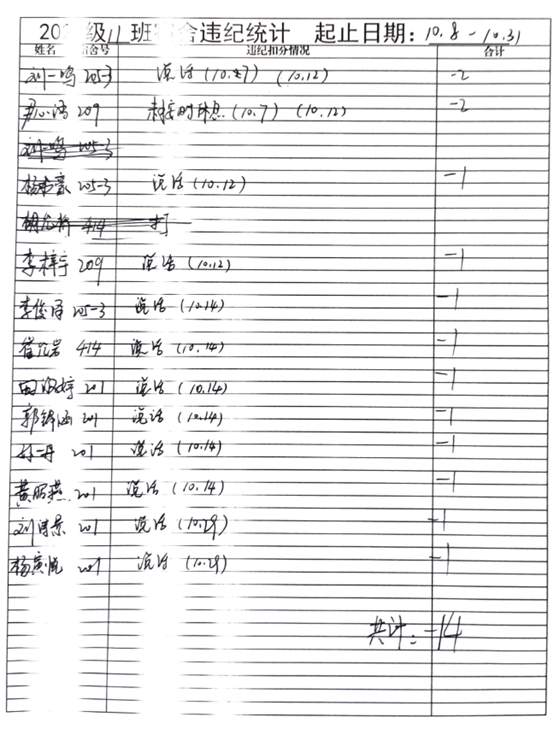 20 级11班 舍违纪统计 起止日期：10.8-10.31
姓名 舍号 违纪扣分情况 合计
刘一鸣 205-3 说话(10.7) (10.12) -2
209 未按时休息(10.7) (10.12) -2
刘一鸣 205-3
205-3 说话(10.12) -1
414 打
李梓宇 209 说话(10.12) -1
李俊泽 205-3 说话(10.14) -1
414 说话(10.14) -1
田 婷 201 说话(10.14) -1
郭 涵 201 说话(10.14) -1
孙一丹 201 说话(10.14) -1
黄 燕 201 说话(10.14) -1
刘 景 201 说话(10.29) -1
杨寅悦 201 说话(10.29) -1
共计：-14